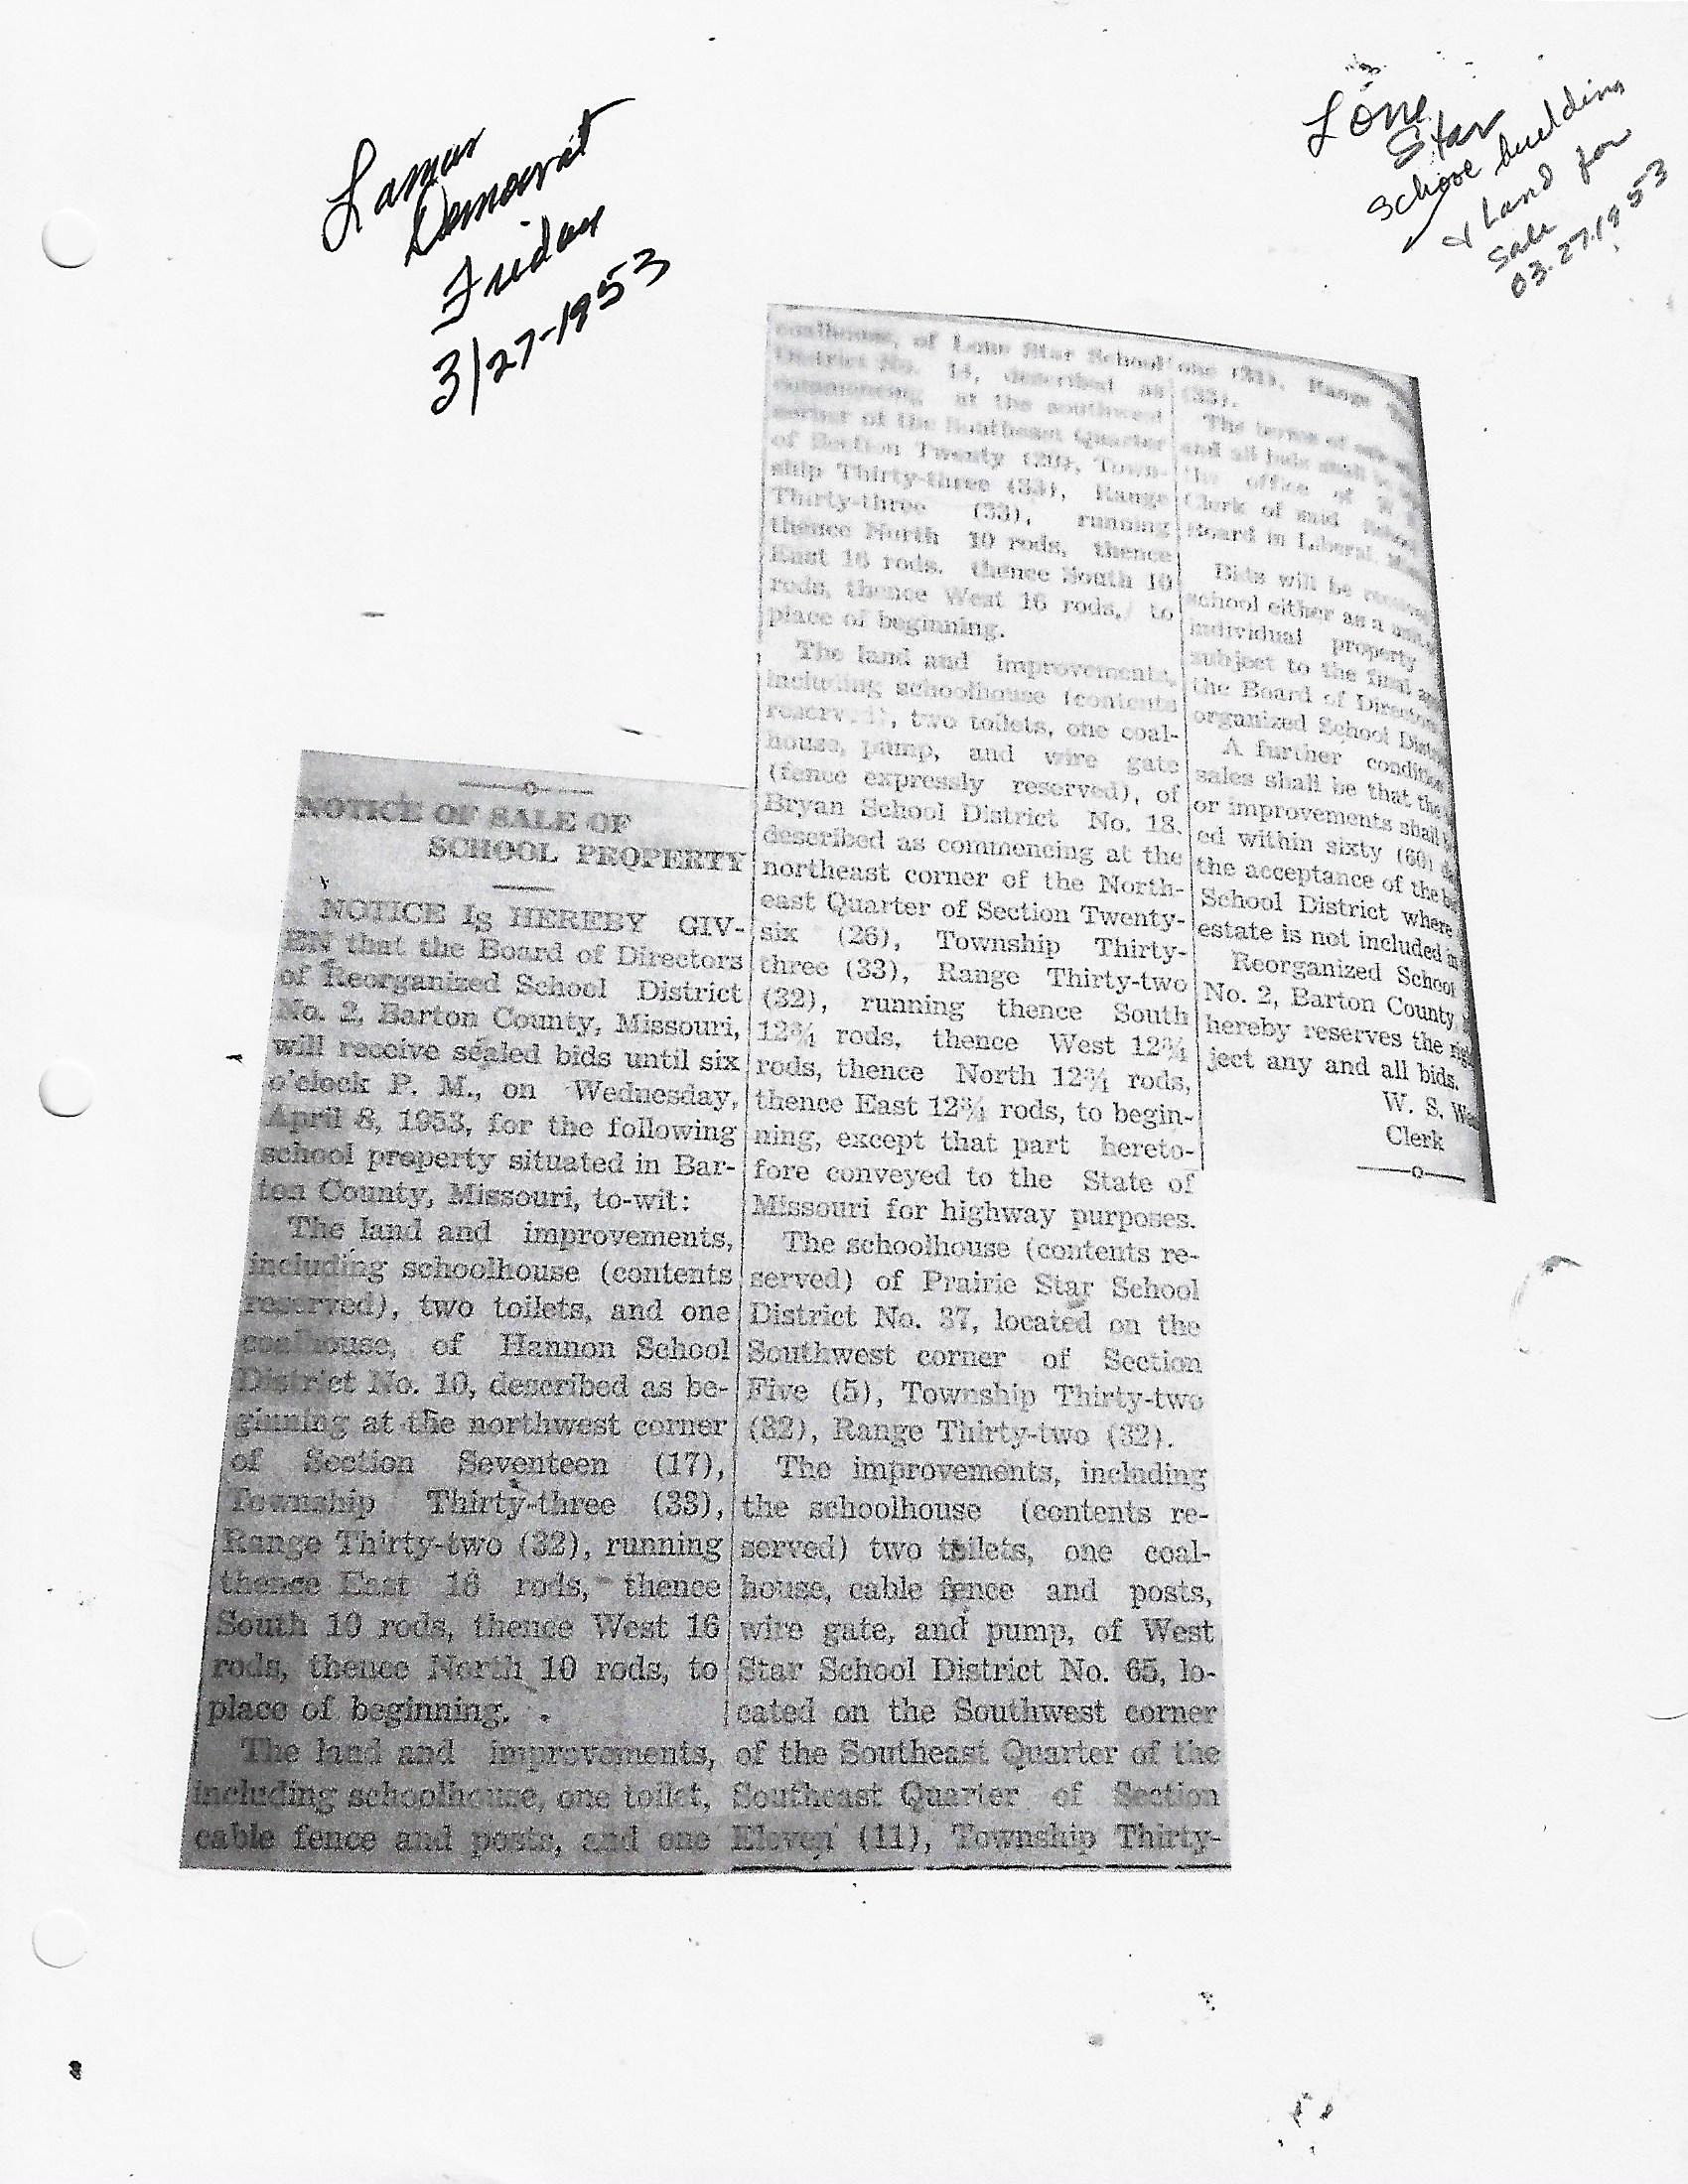 Lamar
Democrat
Friday
3/27-1953
Lone
Star
School building
& Land for
Sale
03.27.1953
NOTICE OF SALE OF
SCHOOL PROPERTY
NOTICE Is HEREBY GIV-
EN that the Board of Directors
of Reorganized School District
No. 2, Barton County, Missouri,
will receive sealed bids until six
o'clock P. M., on Wednesday,
April 8, 1953, for the following
school property situated in Bar-
ton County, Missouri, to-wit:
The land and improvements,
including schoolhouse (contents
reserved), two toilets, and one
coalhouse, of Hannon School
District No. 10, described as be-
ginning at the northwest corner
of Section Seventeen (17),
Township Thirty-three (33),
Range Thirty-two (32), running
thence East 16 rods, thence
South 10 rods, thence West 16
rods, thence North 10 rods, to
place of beginning.
The land and improvements,
including schoolhouse, one toilet,
cable fence and posts, and one
coalhouse, of Lone Star School
District No. 14, described as
commencing at the southwest
corner of the Southeast Quarter
of Section Twenty (20), Town-
ship Thirty-three (33), Range
Thirty-three (33), running
thence North 10 rods, thence
East 16 rods, thence South 10
rods, thence West 16 rods, to
place of beginning.
The land and improvements,
including schoolhouse (contents
reserved), two toilets, one coal-
house, pump, and wire gate
(fence expressly reserved), of
Bryan School District No. 18,
described as commencing at the
northeast corner of the North-
east Quarter of Section Twenty-
six (26), Township Thirty-
three (33), Range Thirty-two
(32), running thence South
12¾ rods, thence West 12¾
rods, thence North 12¾ rods,
thence East 12¾ rods, to begin-
ning, except that part hereto-
fore conveyed to the State of
Missouri for highway purposes.
The schoolhouse (contents re-
served) of Prairie Star School
District No. 37, located on the
Southwest corner of Section
Five (5), Township Thirty-two
(32), Range Thirty-two (32).
The improvements, including
the schoolhouse (contents re-
served) two toilets, one coal-
house, cable fence and posts,
wire gate, and pump, of West
Star School District No. 65, lo-
cated on the Southwest corner
of the Southeast Quarter of the
Southeast Quarter of Section
Eleven (11), Township Thirty-
one (31), Range
(33).
The terms of
and all bids shall be
the office of W
Clerk of said
Board in Liberal,
Bids will be
school either as a
individual property
subject to the final
the Board of Directors
organized School
A further condition
sales shall be that the
or improvements shall
ed within sixty (60)
the acceptance of the
School District where
estate is not included in
Reorganized School
No. 2, Barton County,
hereby reserves the
ject any and all bids.
W. S.
Clerk